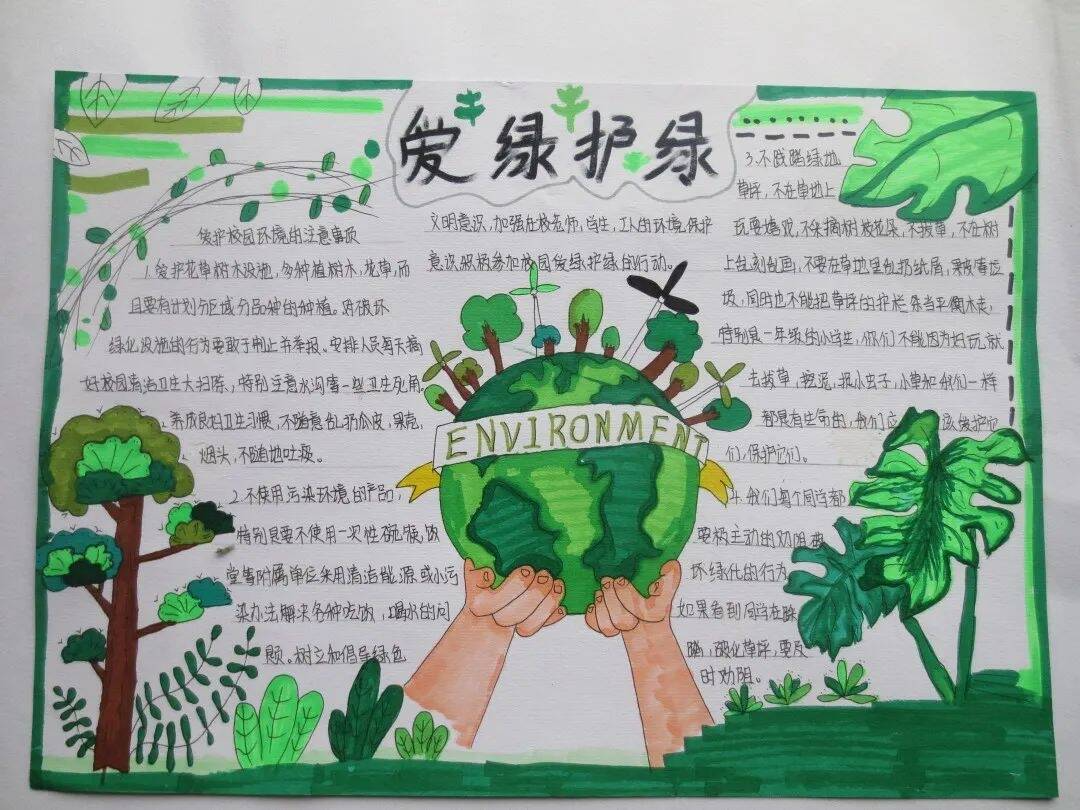 爱绿护绿
爱护校园环境的注意事项
1.爱护花草树木设施,多种植树木,花草,而
且要有计划分区域分品种的种植。对破坏
绿化设施的行为要敢于制止并举报。安排人员每天搞
好校园清洁卫生大扫除,特别注意水沟等一些卫生死角
养成良好卫生习惯,不随意乱扔瓜皮,果壳,
烟头,不随地吐痰。
2.不使用污染环境的产品,
特别是要不使用一次性碗筷,饭
堂等附属单位采用清洁能源或小污
染办法解决各种吃饭,喝水的问
题。树立和倡导绿色
文明意识,加强在校老师,学生,工人的环境保护
意识积极参加校园爱绿护绿的行动。
ENVIRONMENT
3.不践踏绿地
草坪,不在草地上
玩耍嬉戏,不采摘树枝花朵,不拔草,不在树
上乱刻乱画,不要在草地里乱扔纸屑,果皮等垃
圾,同时也不能把草坪的护栏当平衡木走,
特别是一年级的小学生,你们不能因为好玩就
去拔草,挖泥,捉小虫子,小草和我们一样
都是有生命的,我们应该爱护它
们,保护它们。
4.我们每个同学都
要积主动的劝阻破
坏绿化的行为
如果看到同学在踩
踏,破化草坪,要及
时劝阻。